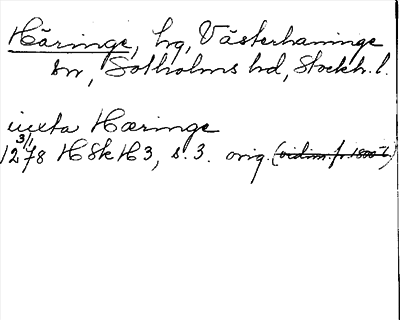 Häringe, hg, Västerhaninge
sn, Sotholms hd, Stockh. l.
iuxta Hæringe
12 3/1 78 HSkH3, s. 3. orig. (vidim. fr. 1800 t.)